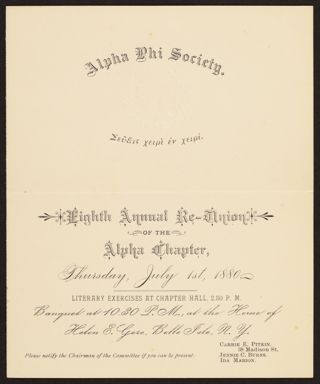 Alpha Phi Society.
Eighth Annual Re-Union
OF THE
Alpha Chapter,
Thursday, July 1st, 1880
LITERARY EXERCISES AT CHAPTER HALL, 2.30 P. M.
Banquet at 10.30 P.M., at the Home of
Helen E. Gere, Belle Isle, N. Y.
CARRIE E. PITKIN,
JENNIE C. BURNS,
IDA MARION.
Please notify the Chairman of the Committee if you can be present.